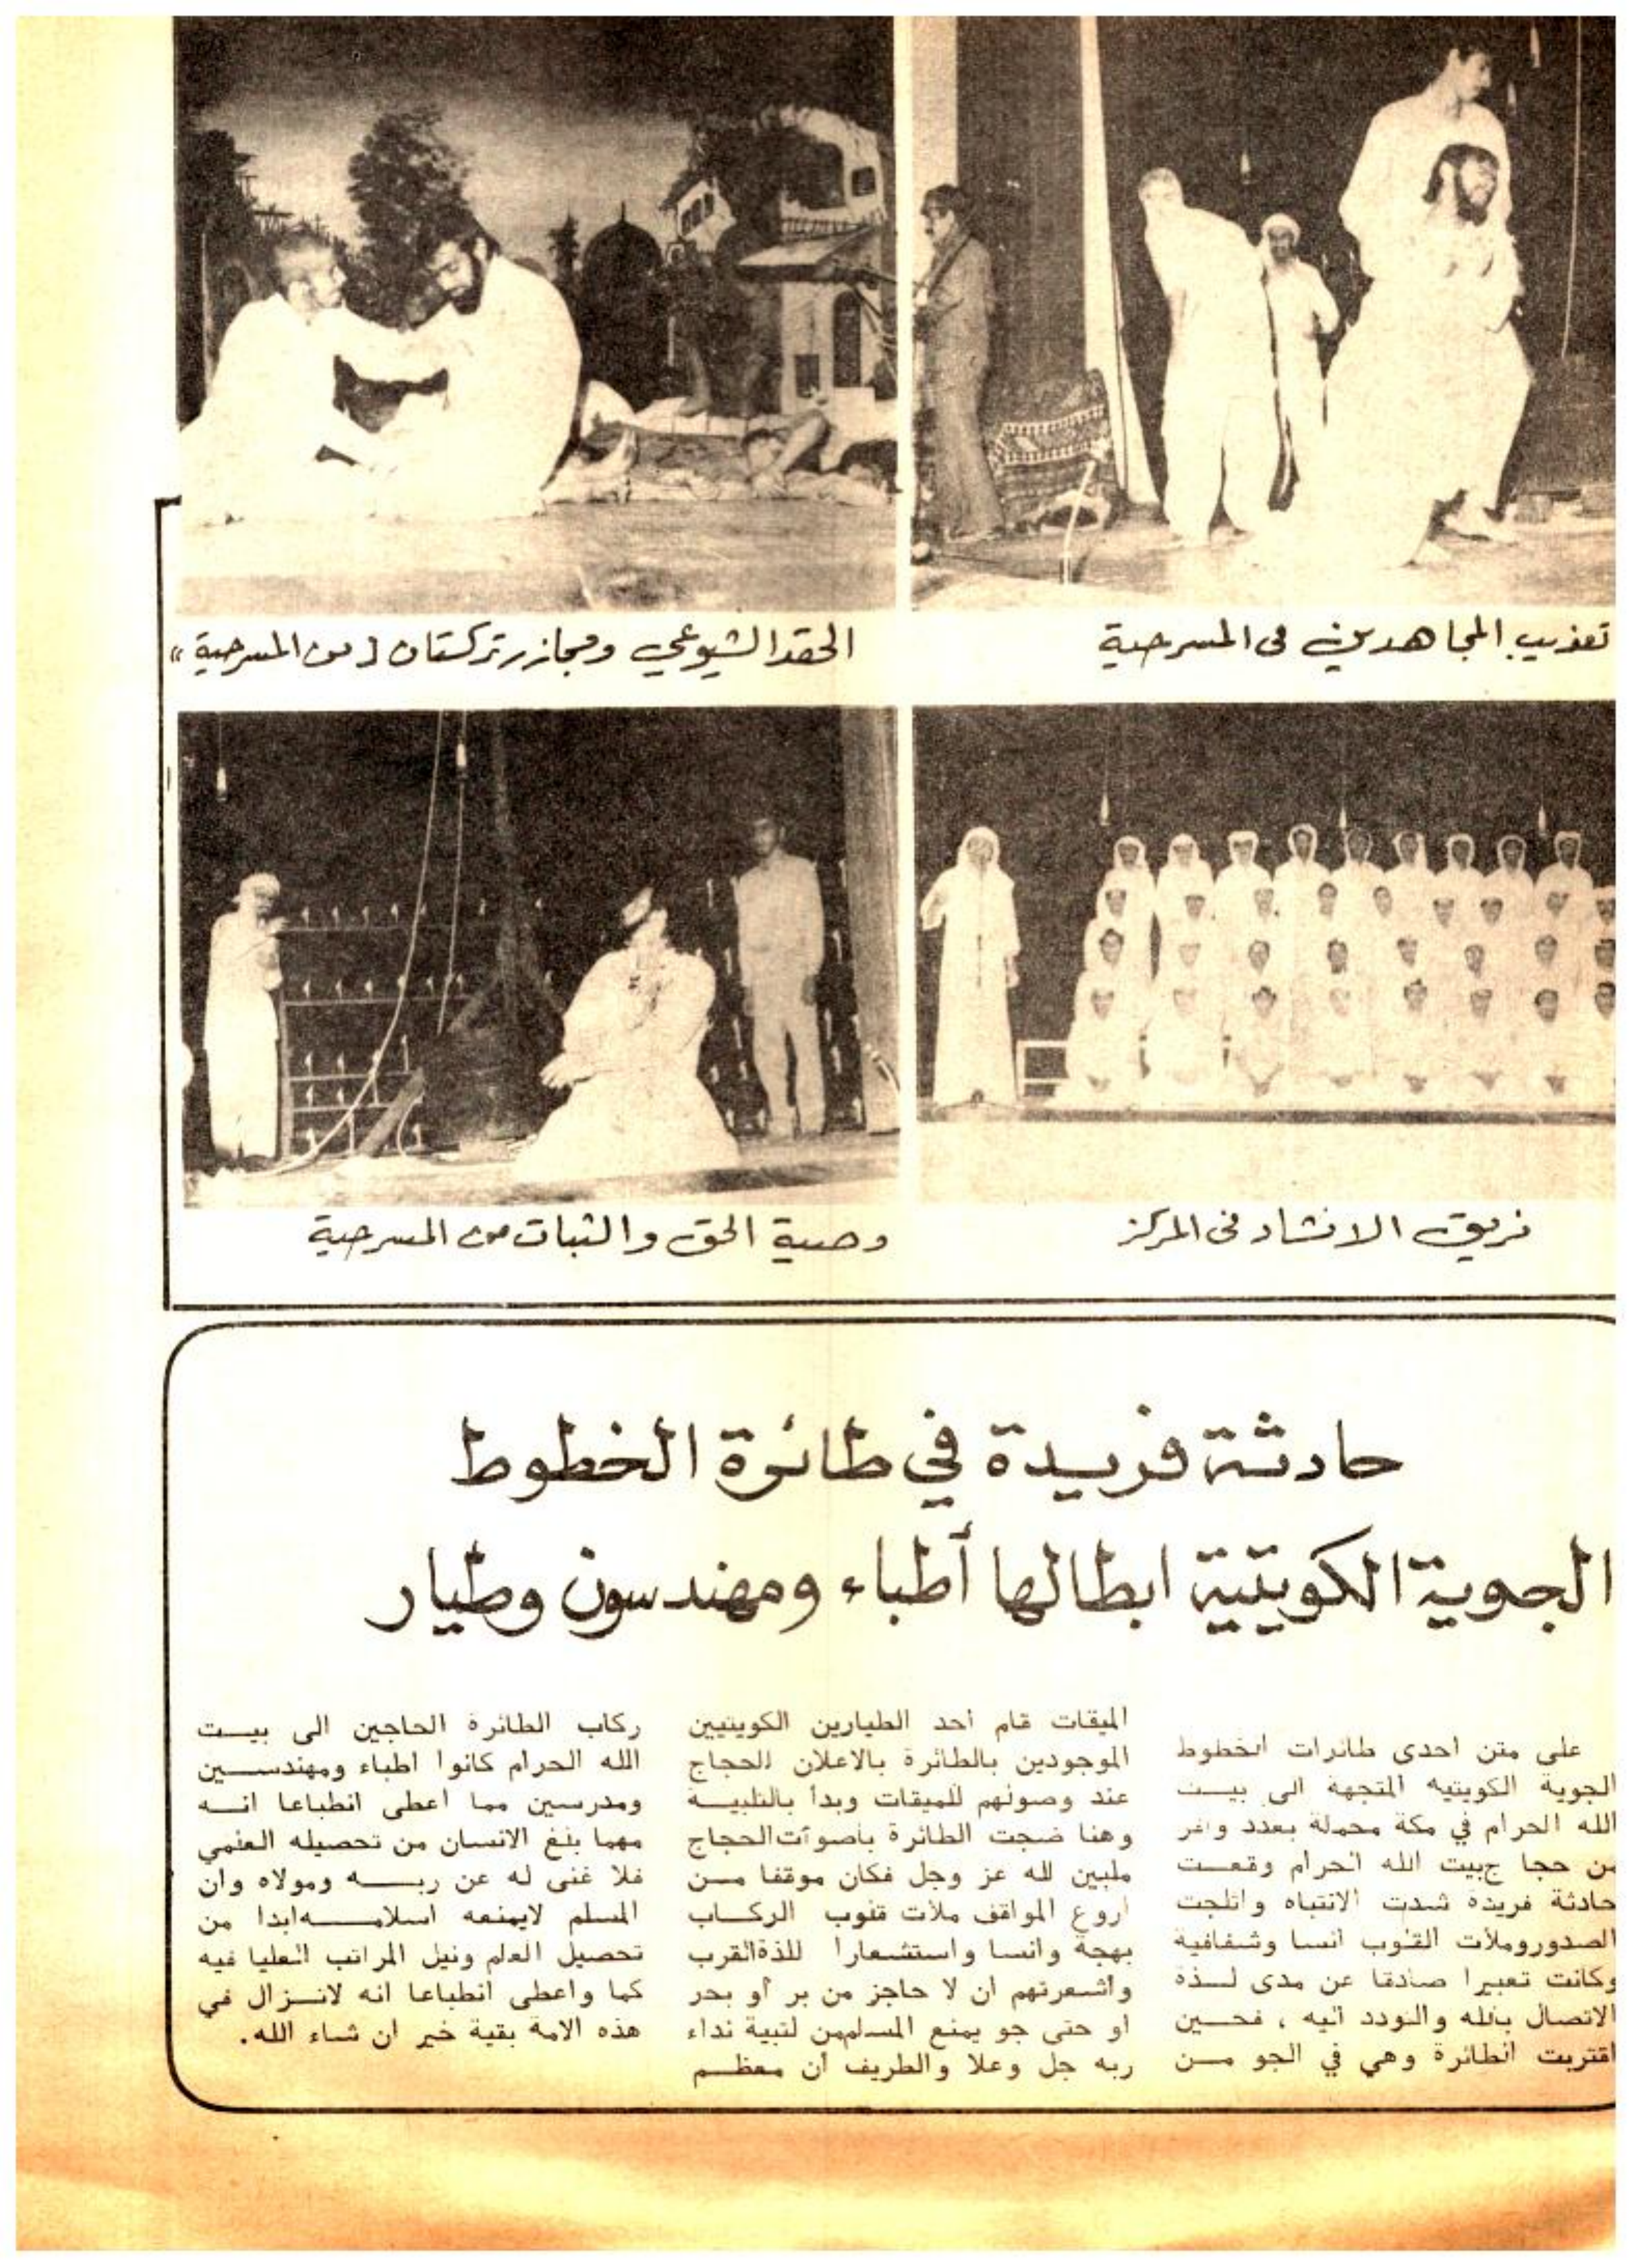 تعذيب المجاهدين في المسرحية
الحقد الشيوعي ومجازر تركستان [من المسرحية»
فريق الانشاد في المركز
وصية الحق والثبات من المسرحية
حادثة فريدة في طائرة الخطوط
الجوية الكويتية ابطالها أطباء ومهندسون وطيار
على متن احدى طائرات الخطوط
الجوية الكويتيه المتجهة الى بيــت
الله الحرام في مكة محملة بعدد وافر
من حجا جبيت الله الحرام وقعــت
حادثة فريدة شدت الانتباه واثلجت
الصدوروملأت القلوب انسا وشفافية
وكانت تعبيرا صادقا عن مدى لــذة
الاتصال بالله والتودد اليه ، فحــين
اقتربت الطائرة وهي في الجو مــن
الميقات قام أحد الطيارين الكويتيين
الموجودين بالطائرة بالاعلان للحجاج
عند وصولهم للميقات وبدأ بالتلبيــة
وهنا ضجت الطائرة بأصوات الحجاج
ملبين لله عز وجل فكان موقفا مــن
اروع المواقف ملأت قلوب الركــاب
بهجة وانسا واستشعارا للذةالقرب
واشعرتهم ان لا حاجز من بر أو بحر
او حتى جو يمنع المسلمين لتبية نداء
ربه جل وعلا والطريف أن معظــم
ركاب الطائرة الحاجين الى بيــت
الله الحرام كانوا اطباء ومهندســين
ومدرسين مما اعطى انطباعا انــه
مهما بلغ الانسان من تحصيله العلمي
فلا غنى له عن ربــــه ومولاه وان
المسلم لايمنعه اسلامــــه ابدا من
تحصيل العلم ونيل المراتب العليا فيه
كما واعطى انطباعا انه لانــزال في
هذه الامة بقية خير ان شاء الله.